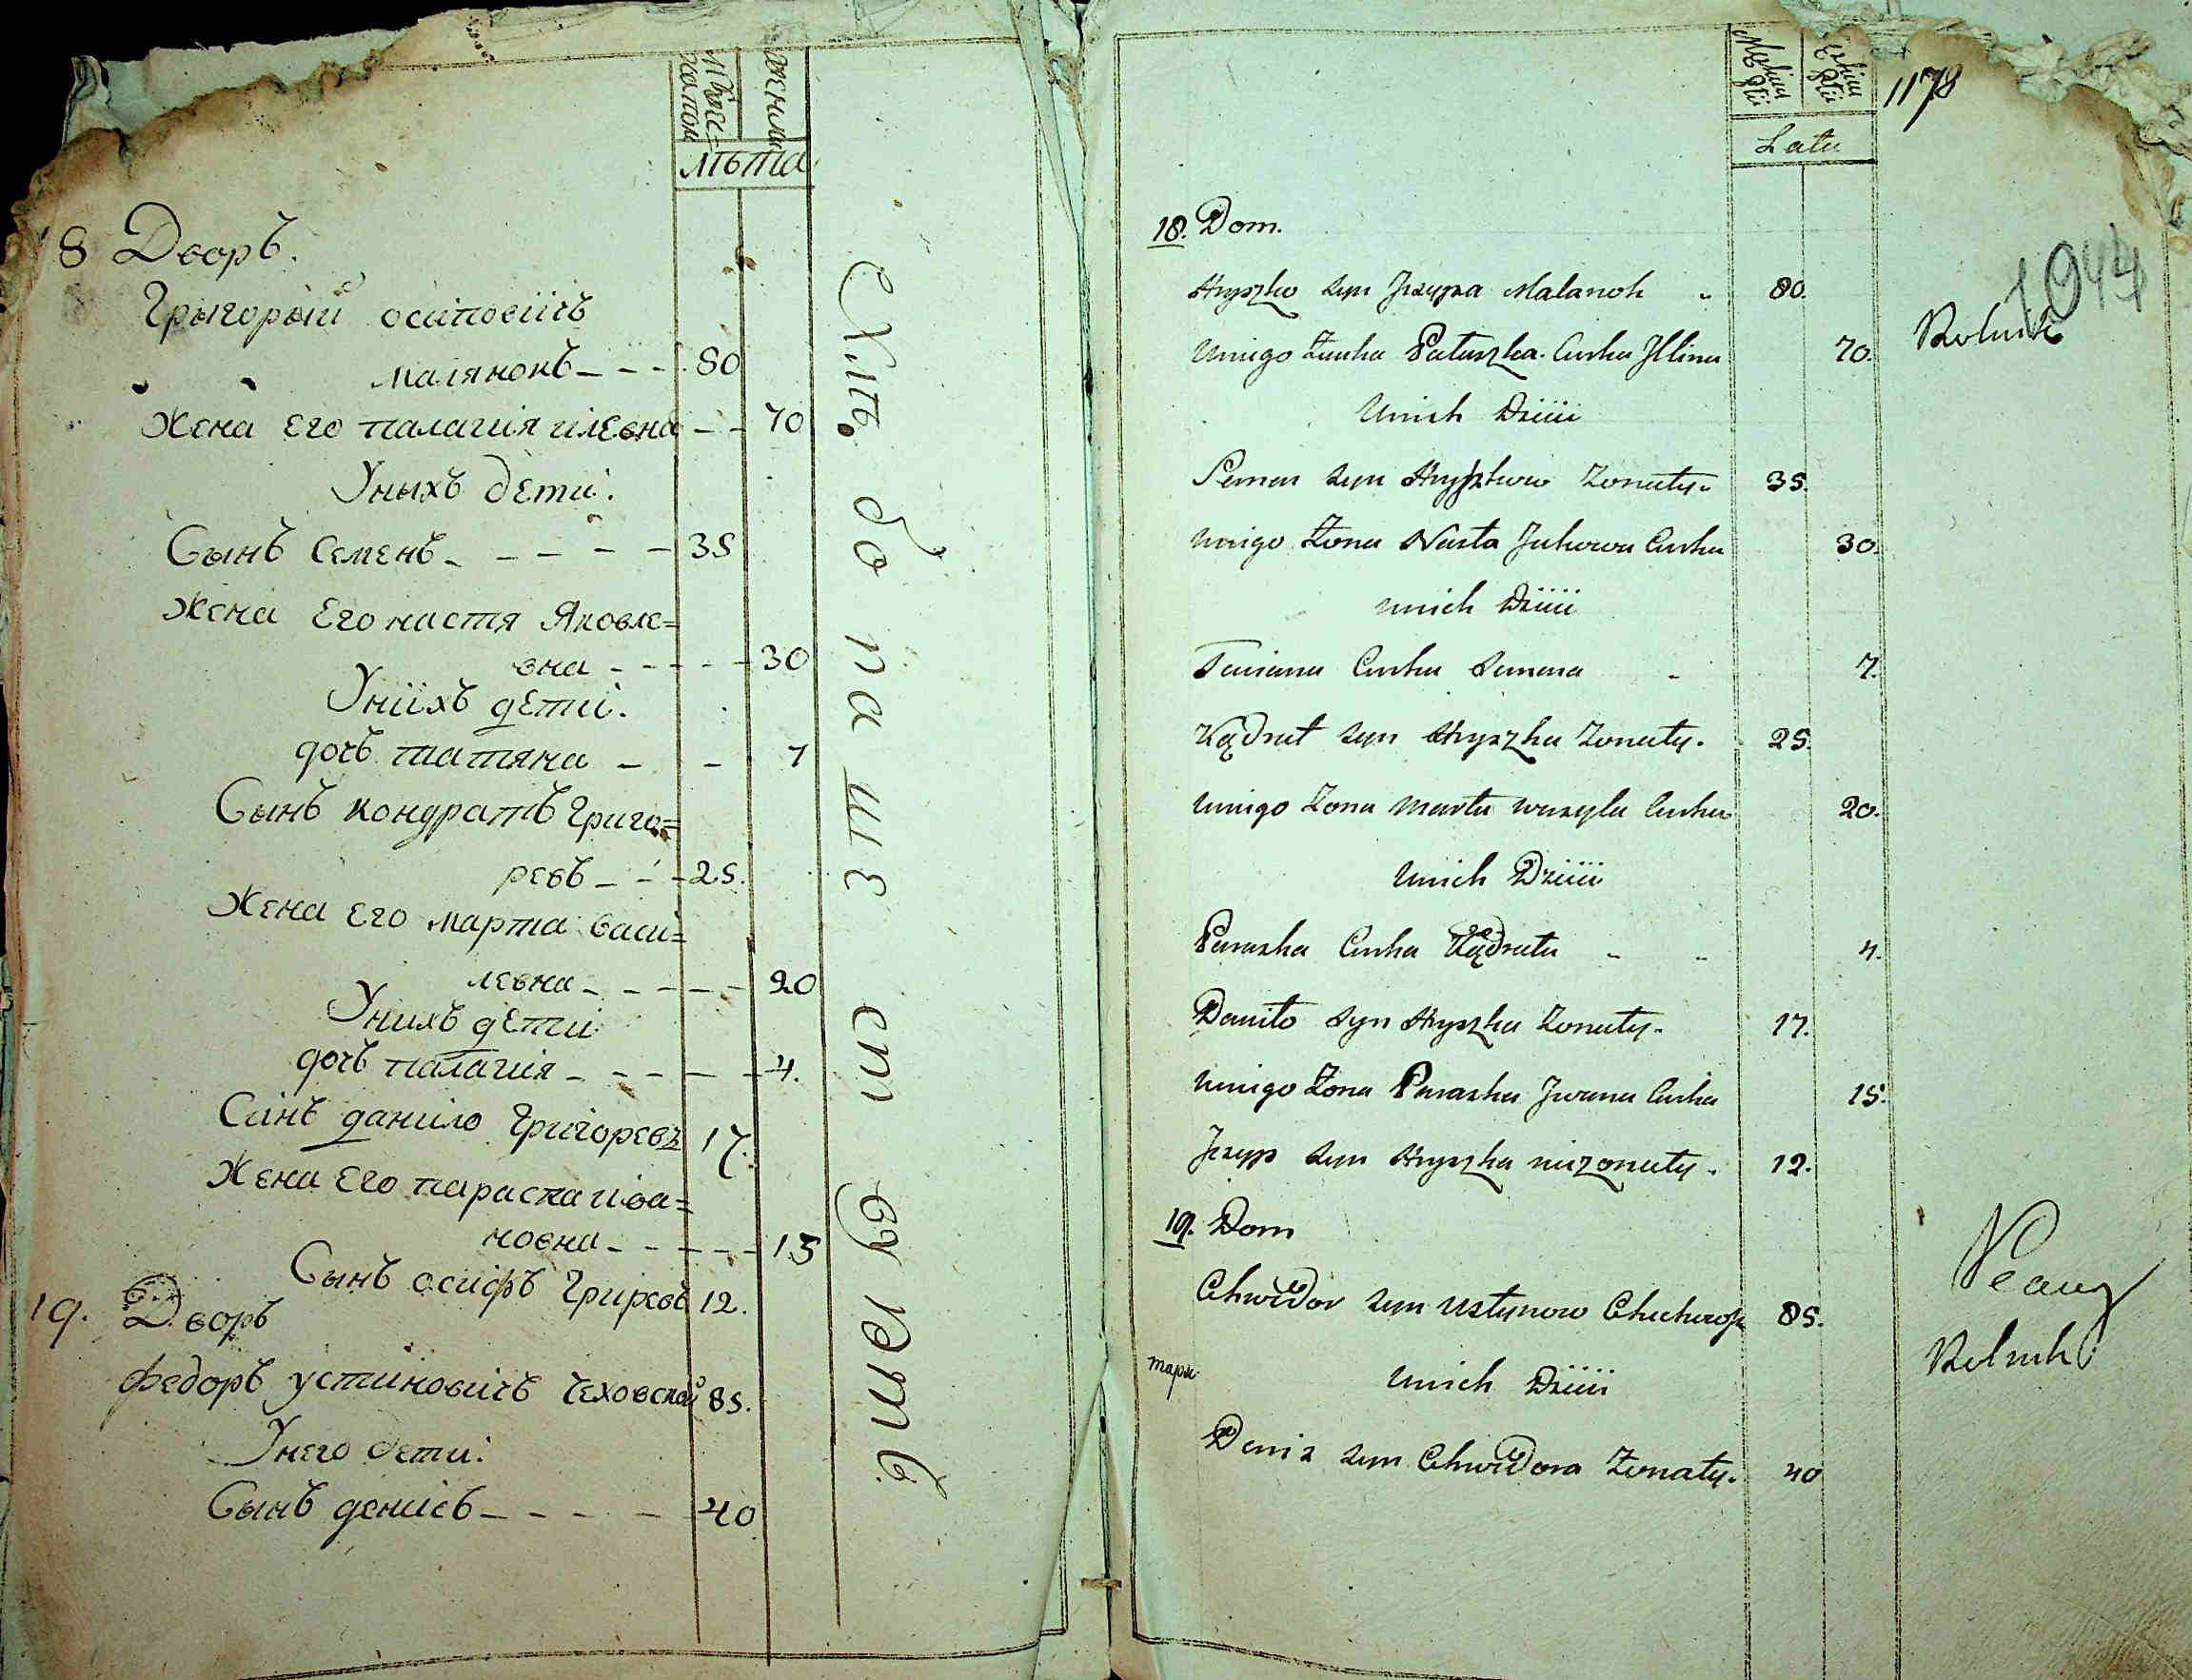 мужеска
женска
лѣта
8 Дворъ.
Григорый осиповичъ
малянокъ - - - 80
Жена Его палагия илевна - - 70
Уныхъ дети.
Сынъ Семенъ - - - - - 35
Жена Его настя Яковле=
вна - - - - - 30
Униихъ дети.
дочь татяна - - 7
Сынъ кондратъ Григо=
ревъ - - - 25.
Жена Его марта васи=
левна - - - - - 20
Унихъ дети
дочь палагия - - - - - 4.
Синъ данило Григоревъ 17.
Жена Его параска ива=
новна - - - - - 15
Сынъ осифъ Григревъ 12.
19. Дворъ
Федоръ устиновичъ Чеховской 85.
Унего дети:
Сынъ денисъ - - - - - 40
Хлѣбопашествуютъ
1178
Latu
1944
18. Dom.
Hryszko syn Jzypa Malanok 80.
Uniego Zonka Pałaszka Curka Illina 70.
Rolnik
Unich Dzieii
Semen syn Hryszkow Zonaty 35.
Uniego Żona Nasta Jakowa Curka 30.
unich Dzieii
Taciana Curka Semena 7.
Kądrat syn Hryszka Zonaty. 25.
Uniego Zona Marta wasyla Curka 20.
Unich Dzieii
Paraska Curka Kądrata 4.
Daniło syn Hryszka Zonaty. 17.
Uniego Żona Paraska Jwana Curka 15.
Jzyp syn Hryszka niezonaty. 12.
19. Dom
Chwiedor syn Ustynow Chechowski 85.
unich Dzieii
Rolnik
Deniz syn Chwiedora Zonaty. 40